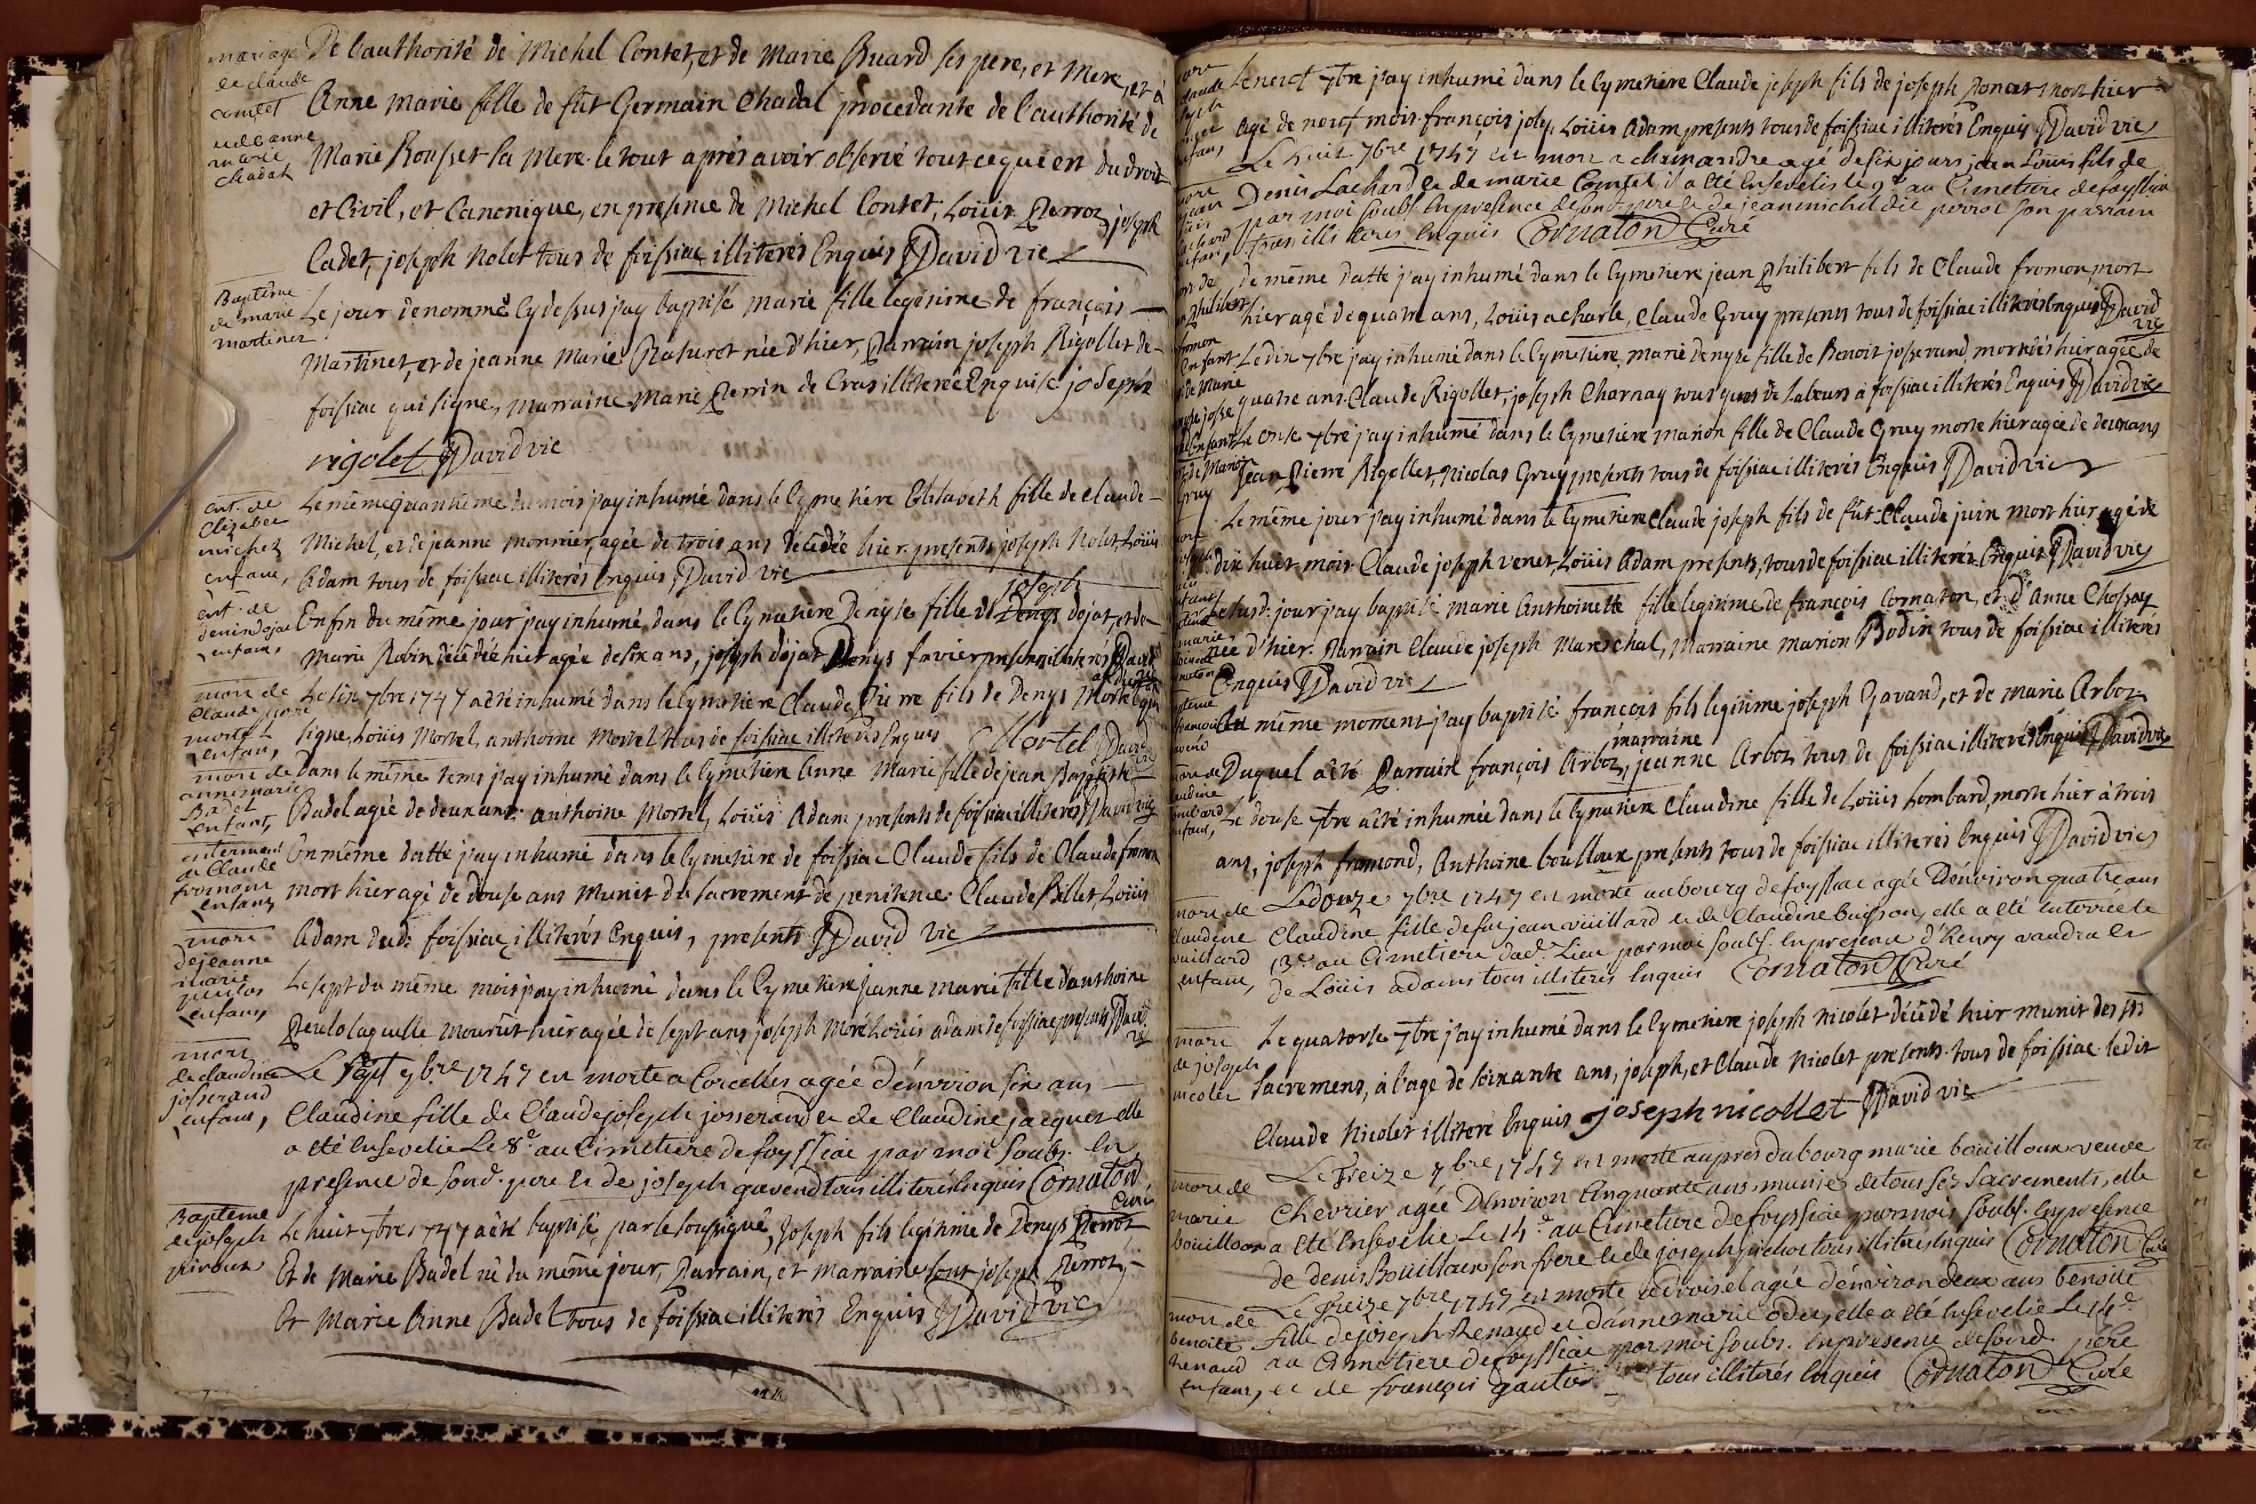 mariage
de claude
comtet
et de anne
marie
chadal
De l'authorité de Michel Contet, et de Marie Buard ses pere, et Mere, et à
Anne Marie fille de fût Germain Chadal procedante de l'authorité de
Marie Rousset sa Mere le tout aprés avoir observé tout ce qui en du droit
et Civil, et Canonique, en presence de Michel Contet, Loüis Perroz, joseph
Cadet, joseph Nolet tous de foissiac illiterés Enquis David vic
Baptême
de marie
martinez
Le jour denommé Cydessus jay baptisé marie fille legitime de françois
Martinet, et de jeanne Marie Naturet née d'hier, Parrain joseph Rigollet de
foissiac qui signe, Marraine Marie Perrin de Cras illiterée Enquise joseph
rigolet David vic
ent. de
Elizabet
michel
enfant,
Le même quantieme du mois jay inhumé dans le Cymetiere Elisabeth fille de claude
Michel, et de jeanne monnier, agée de trois ans décédée hier presents joseph Nolet, Loüis
Adam tous de foissiac illiterés Enquis David vic
ent. de
denin dojat
enfant,
joseph
Enfin du même jour jay inhumé dans le Cymetiere Denyse fille de Denys dejat, et de
Marie Robin décédée hier agée de six ans, joseph dejat Denys favier presents illiterés David
mort de
Claude pierre
mortel
enfan,
Le six 7bre 1747 a été inhumé dans le Cymetiere Claude Pierre fils de Denys Mortel qui
signe, Loüis Mortel, anthoine Mortel tous de foissiac illiterés Enquis Mortel David vic
mort de
annemarie
Badel
enfant,
Dans le même tems jay inhumé dans le Cymetiere Anne Marie fille de jean Baptiste
Badel agée de deux ans. anthoine Mortel, Loüis Adam presents de foissiac illiterés David vic
enterment
de Claude
fromont
enfant,
En même datte j'ay inhumé dans le Cymetiere de foissiac Claude fils de Claude fromon
mort hier agé de douse ans Munit du sacrement de penitence Claude Billet, Loüis
Adam dudt foissiac illiterés Enquis, presents David vic
mort
de jeanne
marie
peulos
enfant,
Le sept du même mois jay inhumé dans le Cymetiere jeanne marie fille d'anthoine
Peulo laquelle mourût hier agée de sept ans joseph Moré Loüis adam de foissiac presents David vic
mort
de claudine
josserand
enfant,
Le sept 7bre 1747 est morte a Corcelles agée d'environ six ans
Claudine fille de Claude joseph josserand et de Claudine jacquet elle
a été ensevelie Le 8e au Cimetiere de foyssiac par moi soubs. en
presence de sond. pere et de joseph gavend tous illiterés enquis Cornaton,
Curé
Baptême
de joseph
piroux
Le huit 7bre 1747 a été baptisé par le soussigné, joseph fils legitime de Denys Perrot,
Et de Marie Badel né du même jour, Parrain, et marraine sont joseph Perrot,
Et Marie Anne Badel tous de foissiac illiterés Enquis David vic
Le neuf 7bre j'ay inhumé dans le Cymetiere Claude joseph fils de joseph Poncet mort hier
Agé de neuf mois françois joly, Loüis Adam presents tous de foissiac illiterés Enquis David vic
Le huit 7bre 1747 est mort a chamandre agé de six jours jean Louis fils de
Denis Lachard et de marie Comtet, il a été Ensevelis le 9e au Cimetiere de foyssia
par moi soubs. En presence de son pere et de jean michel dit perrot son parrain
tous illiterés Enquis Cornaton Curé
de même datte j'ay inhumé dans le Cymetiere jean Philibert fils de Claude fromon mort
hier agé de quatre ans, Loüis acharle, Claude Gruy presents tous de foissiac illiterés Enquis David
vic
fromon
enfant
Le dix 7bre j'ay inhumé dans le Cymetiere marie denyse fille de Benoit josserand, morte hier agée de
quatre ans. Claude Rigollet, joseph Charnay tous gens de Labeurs à foissiac illiterés Enquis David vic
de Marion
Gruy
Le onse 7bre j'ay inhumé dans le Cymetiere marion fille de Claude Gruy morte hier agée de deux ans
Jean Pierre Rigollet, Nicolas Gruy presents tous de foissiac illiterés Enquis David vic
Le même jour j'ay inhumé dans le Cymetiere Claude joseph fils de fût Claude juin mort hier agé de
dix huit mois Claude joseph venet, Loüis Adam presents, tous de foissiac illiterés Enquis David vic
Le susd. jour j'ay baptisé marie Anthoinette fille legitime de françois Cornaton, et d'Anne Chossat
née d'hier. Parrain Claude joseph Mareschal, Marraine marion Bodin tous de foissiac illiterés
Enquis David vic
Au même moment j'ay baptisé françois fils legitime joseph Gavand, et de marie Arboz
marraine
Duquel a été Parrain françois Arboz, jeanne Arboz tous de foissiac illiterés Enquis David vic
Le douse 7bre a été inhumée dans le Cymetiere Claudine fille de Loüis Lombard, morte hier à trois
ans, joseph framond, Anthoine boulloux presents tous de foissiac illiterés Enquis David vic
mort de
Claudine
vuillard
enfant,
Le douze 7bre 1747 est morte au bourg de foyssiac agée d'environ quatre ans
Claudine fille de feu jean vuillard et de Claudine buisson, elle a été enterrée le
13e au Cimetiere dud. Lieu par moi soubs. en presence d'henry vaudra et
de Loüis adam tous illiterés enquis Cornaton Curé
mort
de joseph
nicolet
Le quatorse 7bre j'ay inhumé dans le Cymetiere joseph nicolet décédé hier munit des sts
sacremens, à l'age de soixante ans, joseph, et Claude Nicolet presents tous de foissiac ledit
Claude Nicolet illiteré Enquis joseph nicollet David vic
mort de
marie
bouilloux
Le treize 7bre 1747 est morte aupres du bourg marie bouilloux veuve
Chevrier agée D'environ Cinquante ans munie de tous ses sacrements, elle
a été ensevelie Le 14e au Cimetiere de foyssiac par moi soubs. en presence
de denis Bouilloux son frere et de joseph pichot tous illiterés enquis Cornaton Curé
mort de
benoite
Renaud
enfant,
Le treize 7bre 1747 est morte agée d'environ deux ans benoite
fille de joseph Renaud et d'anne marie oder, elle a été ensevelie Le 14e
au Cimetiere de foyssiac par moi soubs. en presence de sond. pere
et de françois gautier tous illiterés enquis Cornaton Curé